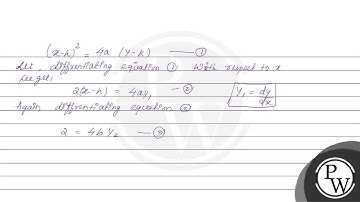 (x-h)² = 4a (y-k) — ①
Let, differentiating equation ① with respect to x
we get,
2(x-h) = 4ay₁ — ②
y₁ = dy/dx
Again differentiating equation ②
2 = 4by₂ — ③
PW